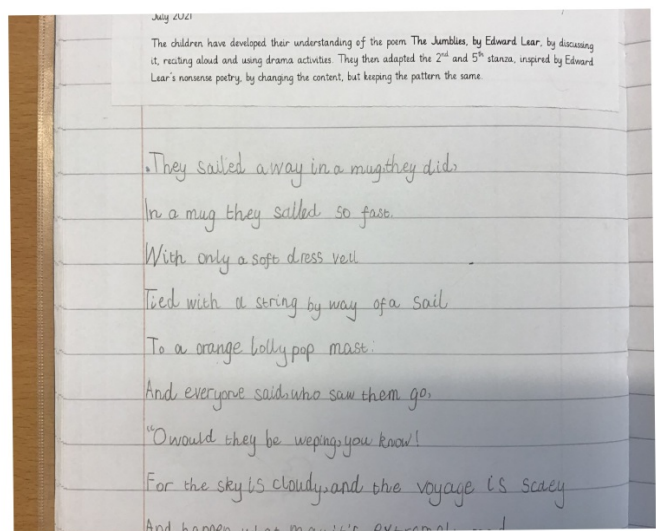 July 2021
The children have developed their understanding of the poem The Jumblies, by Edward Lear, by discussing
it, reciting aloud and using drama activities. They then adapted the 2nd and 5th stanza, inspired by Edward
Lear's nonsense poetry, by changing the content, but keeping the pattern the same.
They sailed away in a mug, they did,
In a mug they sailed so fast.
With only a soft dress veil
Tied with a string by way of a sail
To a orange lollypop mast:
And everyone said, who saw them go,
"O would they be weping, you know!
For the sky is cloudy, and the voyage is scary
And happen what may it's